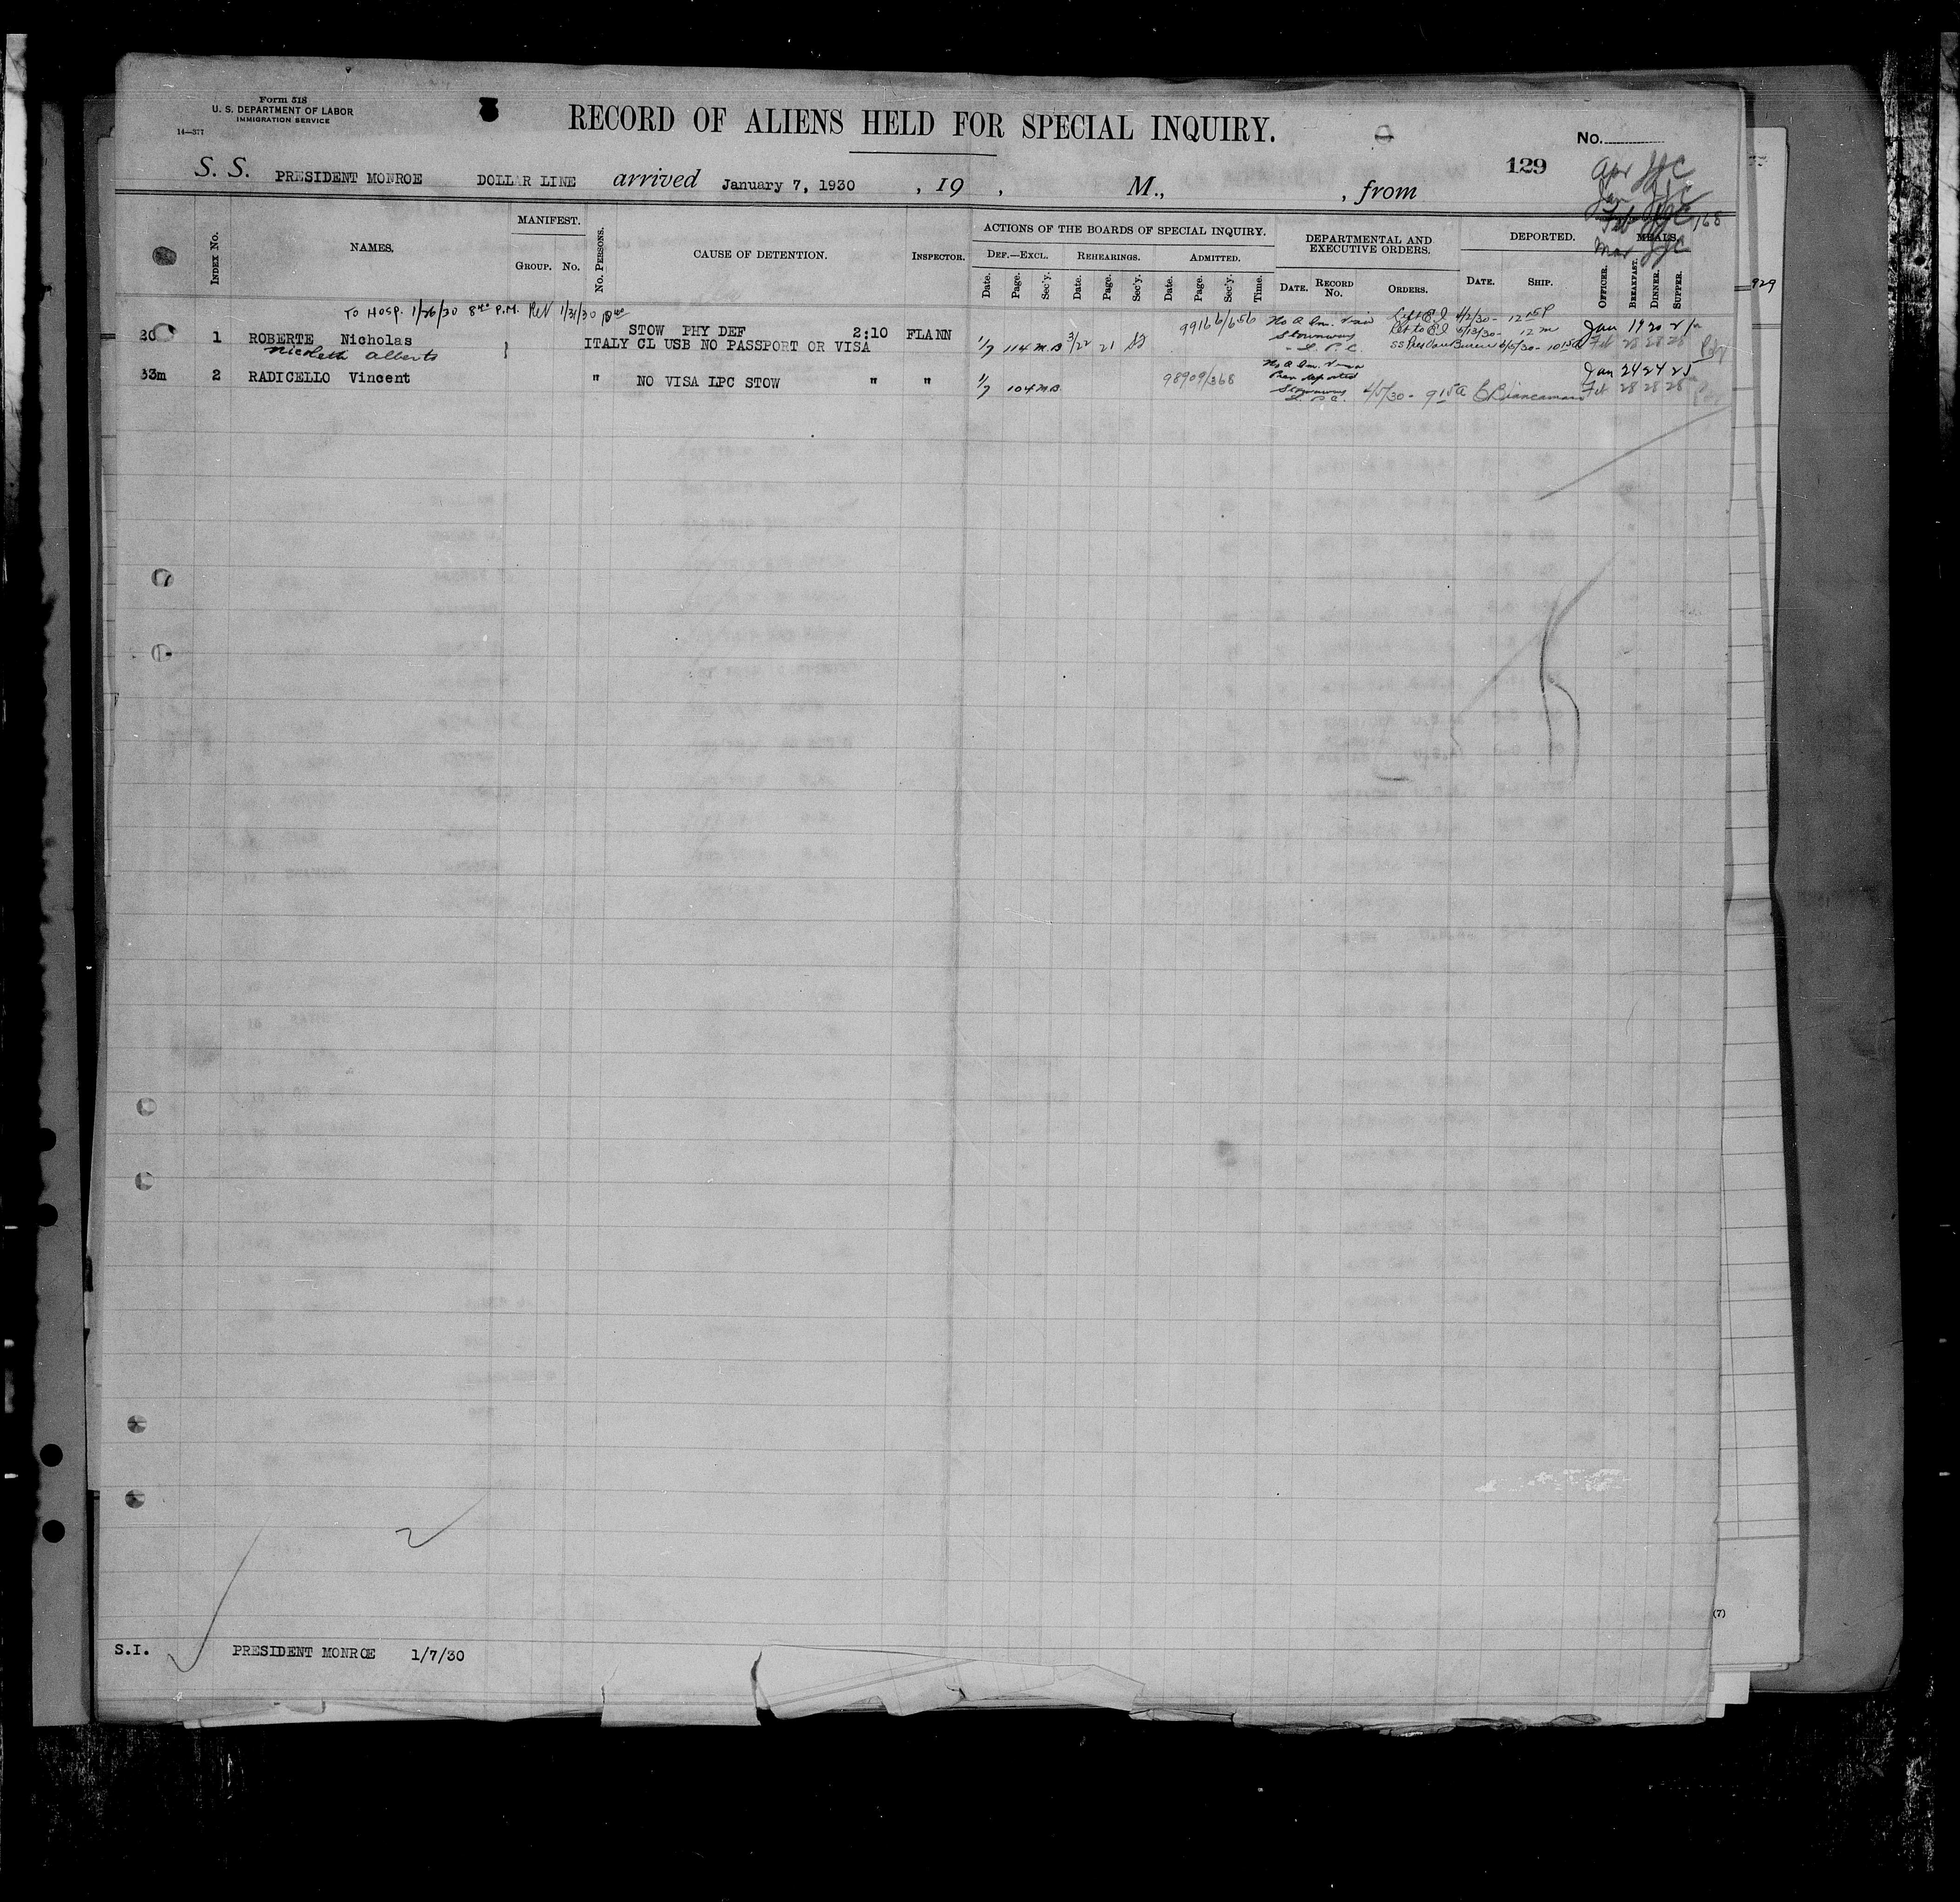 Form 518
U. S. DEPARTMENT OF LABOR
IMMIGRATION SERVICE
14—377
RECORD OF ALIENS HELD FOR SPECIAL INQUIRY.
No.
129
S. S. PRESIDENT MONROE DOLLAR LINE arrived January 7, 1930 , 19 , M., , from
Apr JJC
Jan JJC
Feb JJC 168
Mar JJC
INDEX No.
NAMES.
MANIFEST.
GROUP. No.
No. PERSONS.
CAUSE OF DETENTION.
INSPECTOR.
ACTIONS OF THE BOARDS OF SPECIAL INQUIRY.
DEF.—EXCL. REHEARINGS. ADMITTED.
Date. Page. Sec'y. Date. Page. Sec'y. Date. Page. Sec'y. Time.
DEPARTMENTAL AND EXECUTIVE ORDERS.
DATE. RECORD No. ORDERS.
DEPORTED.
DATE. SHIP.
MEALS.
OFFICER. BREAKFAST. DINNER. SUPPER.
929
To Hosp. 1/26/30 8 P.M. Ret 1/31/30
30 1 ROBERTE Nicholas STOW PHY DEF 2:10 FLANN 1/7 114 M.B 3/22 21 99166/656
ITALY CL USB NO PASSPORT OR VISA
Nicoleth Alberts
Stowaway
L. P. C.
Left E I 4/2/30 - 12 15 P
Ret to E I 5/13/30 - 12 m
SS Pres Van Buren 6/5/30 - 10 15 A
Jan 19 20 21
Feb 28 28 28
33m 2 RADICELLO Vincent " NO VISA LPC STOW " " 1/7 104 M.B 98909/368
Prev deported
Stowaway
L. P. C. 4/5/30 - 9 15 A C Biancamano
Jan 24 24 25
Feb 28 28 28
(7)
S.I. PRESIDENT MONROE 1/7/30